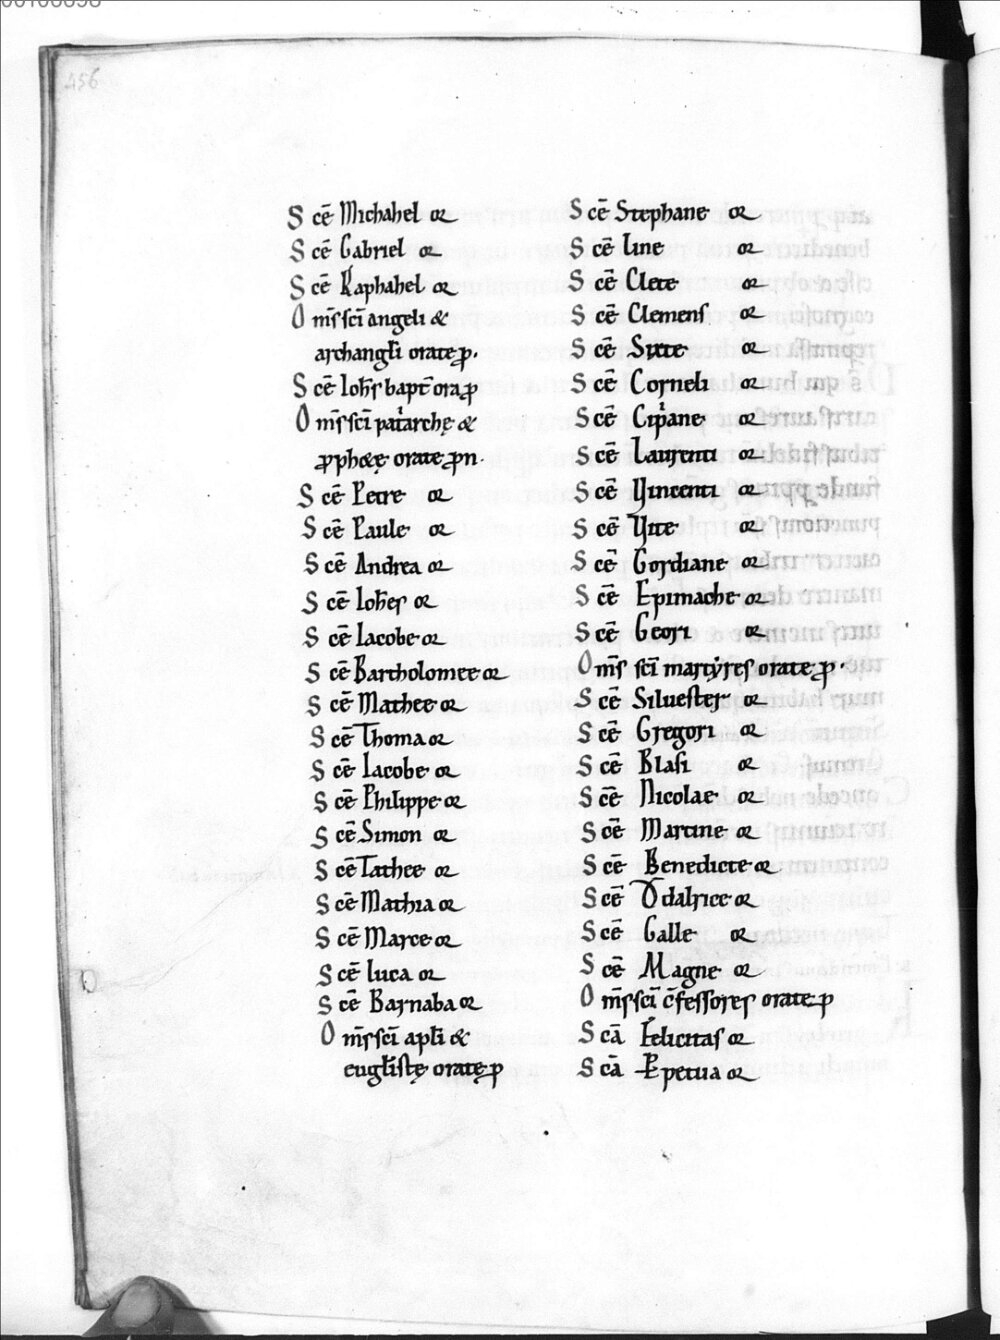 456
Scē Michahel or
Scē Gabriel or
Scē Raphahel or
Om̄s sc̄i angeli &
archangl̄i orate ꝓ.
Scē Ioh̄s bapt̄ ora ꝓ
Om̄s sc̄i pat'archę &
ꝓph&ę orate ꝓ n.
Scē Petre or
Scē Paule or
Scē Andrea or
Scē Ioh̄es or
Scē Iacobe or
Scē Bartholomee or
Scē Mathee or
Scē Thoma or
Scē Iacobe or
Scē Philippe or
Scē Simon or
Scē Tathee or
Scē Mathia or
Scē Marce or
Scē Luca or
Scē Barnaba or
Om̄s sc̄i apl̄i &
eugl̄istę orate ꝓ
Scē Stephane or
Scē Line or
Scē Clete or
Scē Clemens or
Scē Sixte or
Scē Corneli or
Scē Cip'ane or
Scē Laurenti or
Scē Vincenti or
Scē Vite or
Scē Gordiane or
Scē Epimache or
Scē Geori or
Om̄s sc̄i martyres orate ꝓ.
Scē Siluester or
Scē Gregori or
Scē Blasi or
Scē Nicolae or
Scē Martine or
Scē Benedicte or
Scē Ǒdalrice or
Scē Galle or
Scē Magne or
Om̄s sc̄i c̄fessores orate ꝓ
Scā Felicitas or
Scā Ꝑpetua or